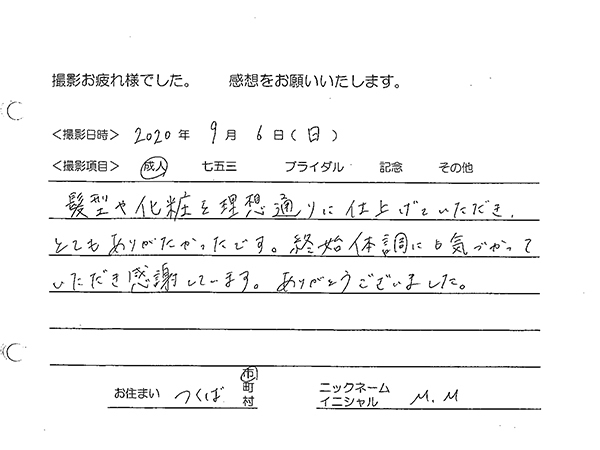 撮影お疲れ様でした。　感想をお願いいたします。
＜撮影日時＞ 2020年 9月 6日(日)
＜撮影項目＞ 成人 七五三 ブライダル 記念 その他
髪型や化粧を理想通りに仕上げていただき、
とてもありがたかったです。終始体調にも気づかって
いただき感謝しています。ありがとうございました。
お住まい つくば 市町村 ニックネーム イニシャル M.M